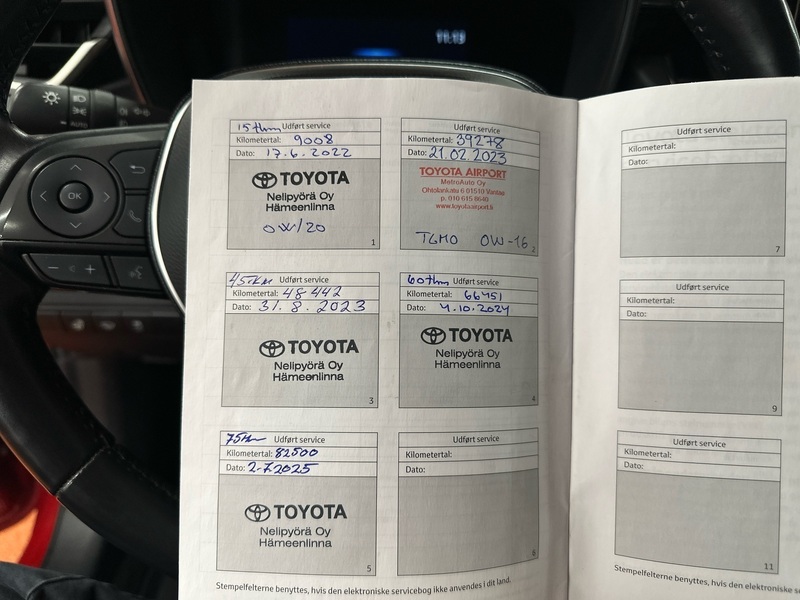 11:19
AUTO
OK
15 tkm Udført service
Kilometertal: 9008
Dato: 17.6.2022
TOYOTA
Nelipyörä Oy
Hämeenlinna
0W/20
1
Udført service
Kilometertal: 39278
Dato: 21.02.2023
TOYOTA AIRPORT
MetroAuto Oy
Ohtolankatu 6 01510 Vantaa
p. 010 615 8640
www.toyotaairport.fi
TGMO 0W-16
2
45 tkm Udført service
Kilometertal: 48 442
Dato: 31.8.2023
TOYOTA
Nelipyörä Oy
Hämeenlinna
3
60 tkm Udført service
Kilometertal: 66451
Dato: 4.10.2024
TOYOTA
Nelipyörä Oy
Hämeenlinna
4
Udført service
Kilometertal: 82500
Dato: 2-7.2025
TOYOTA
Nelipyörä Oy
Hämeenlinna
5
Udført service
Kilometertal:
Dato:
6
Stempelfelterne benyttes, hvis den elektroniske servicebog ikke anvendes i dit land.
Udført service
Kilometertal:
Dato:
7
Udført service
Kilometertal:
Dato:
9
Udført service
Kilometertal:
Dato:
11
Stempelfelterne benyttes, hvis den elektroniske